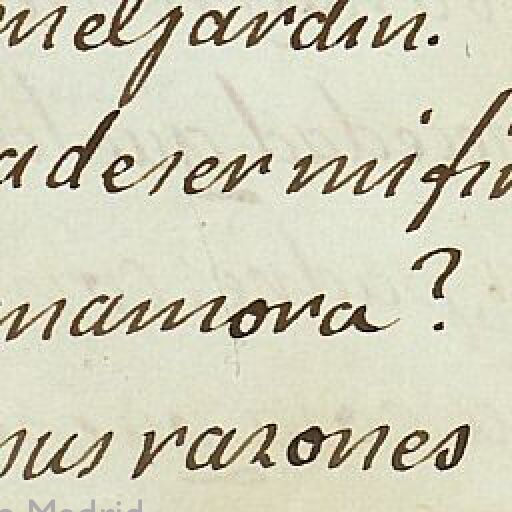 en el jardin.
a de ser mi fin
namora?
sus razones
Madrid